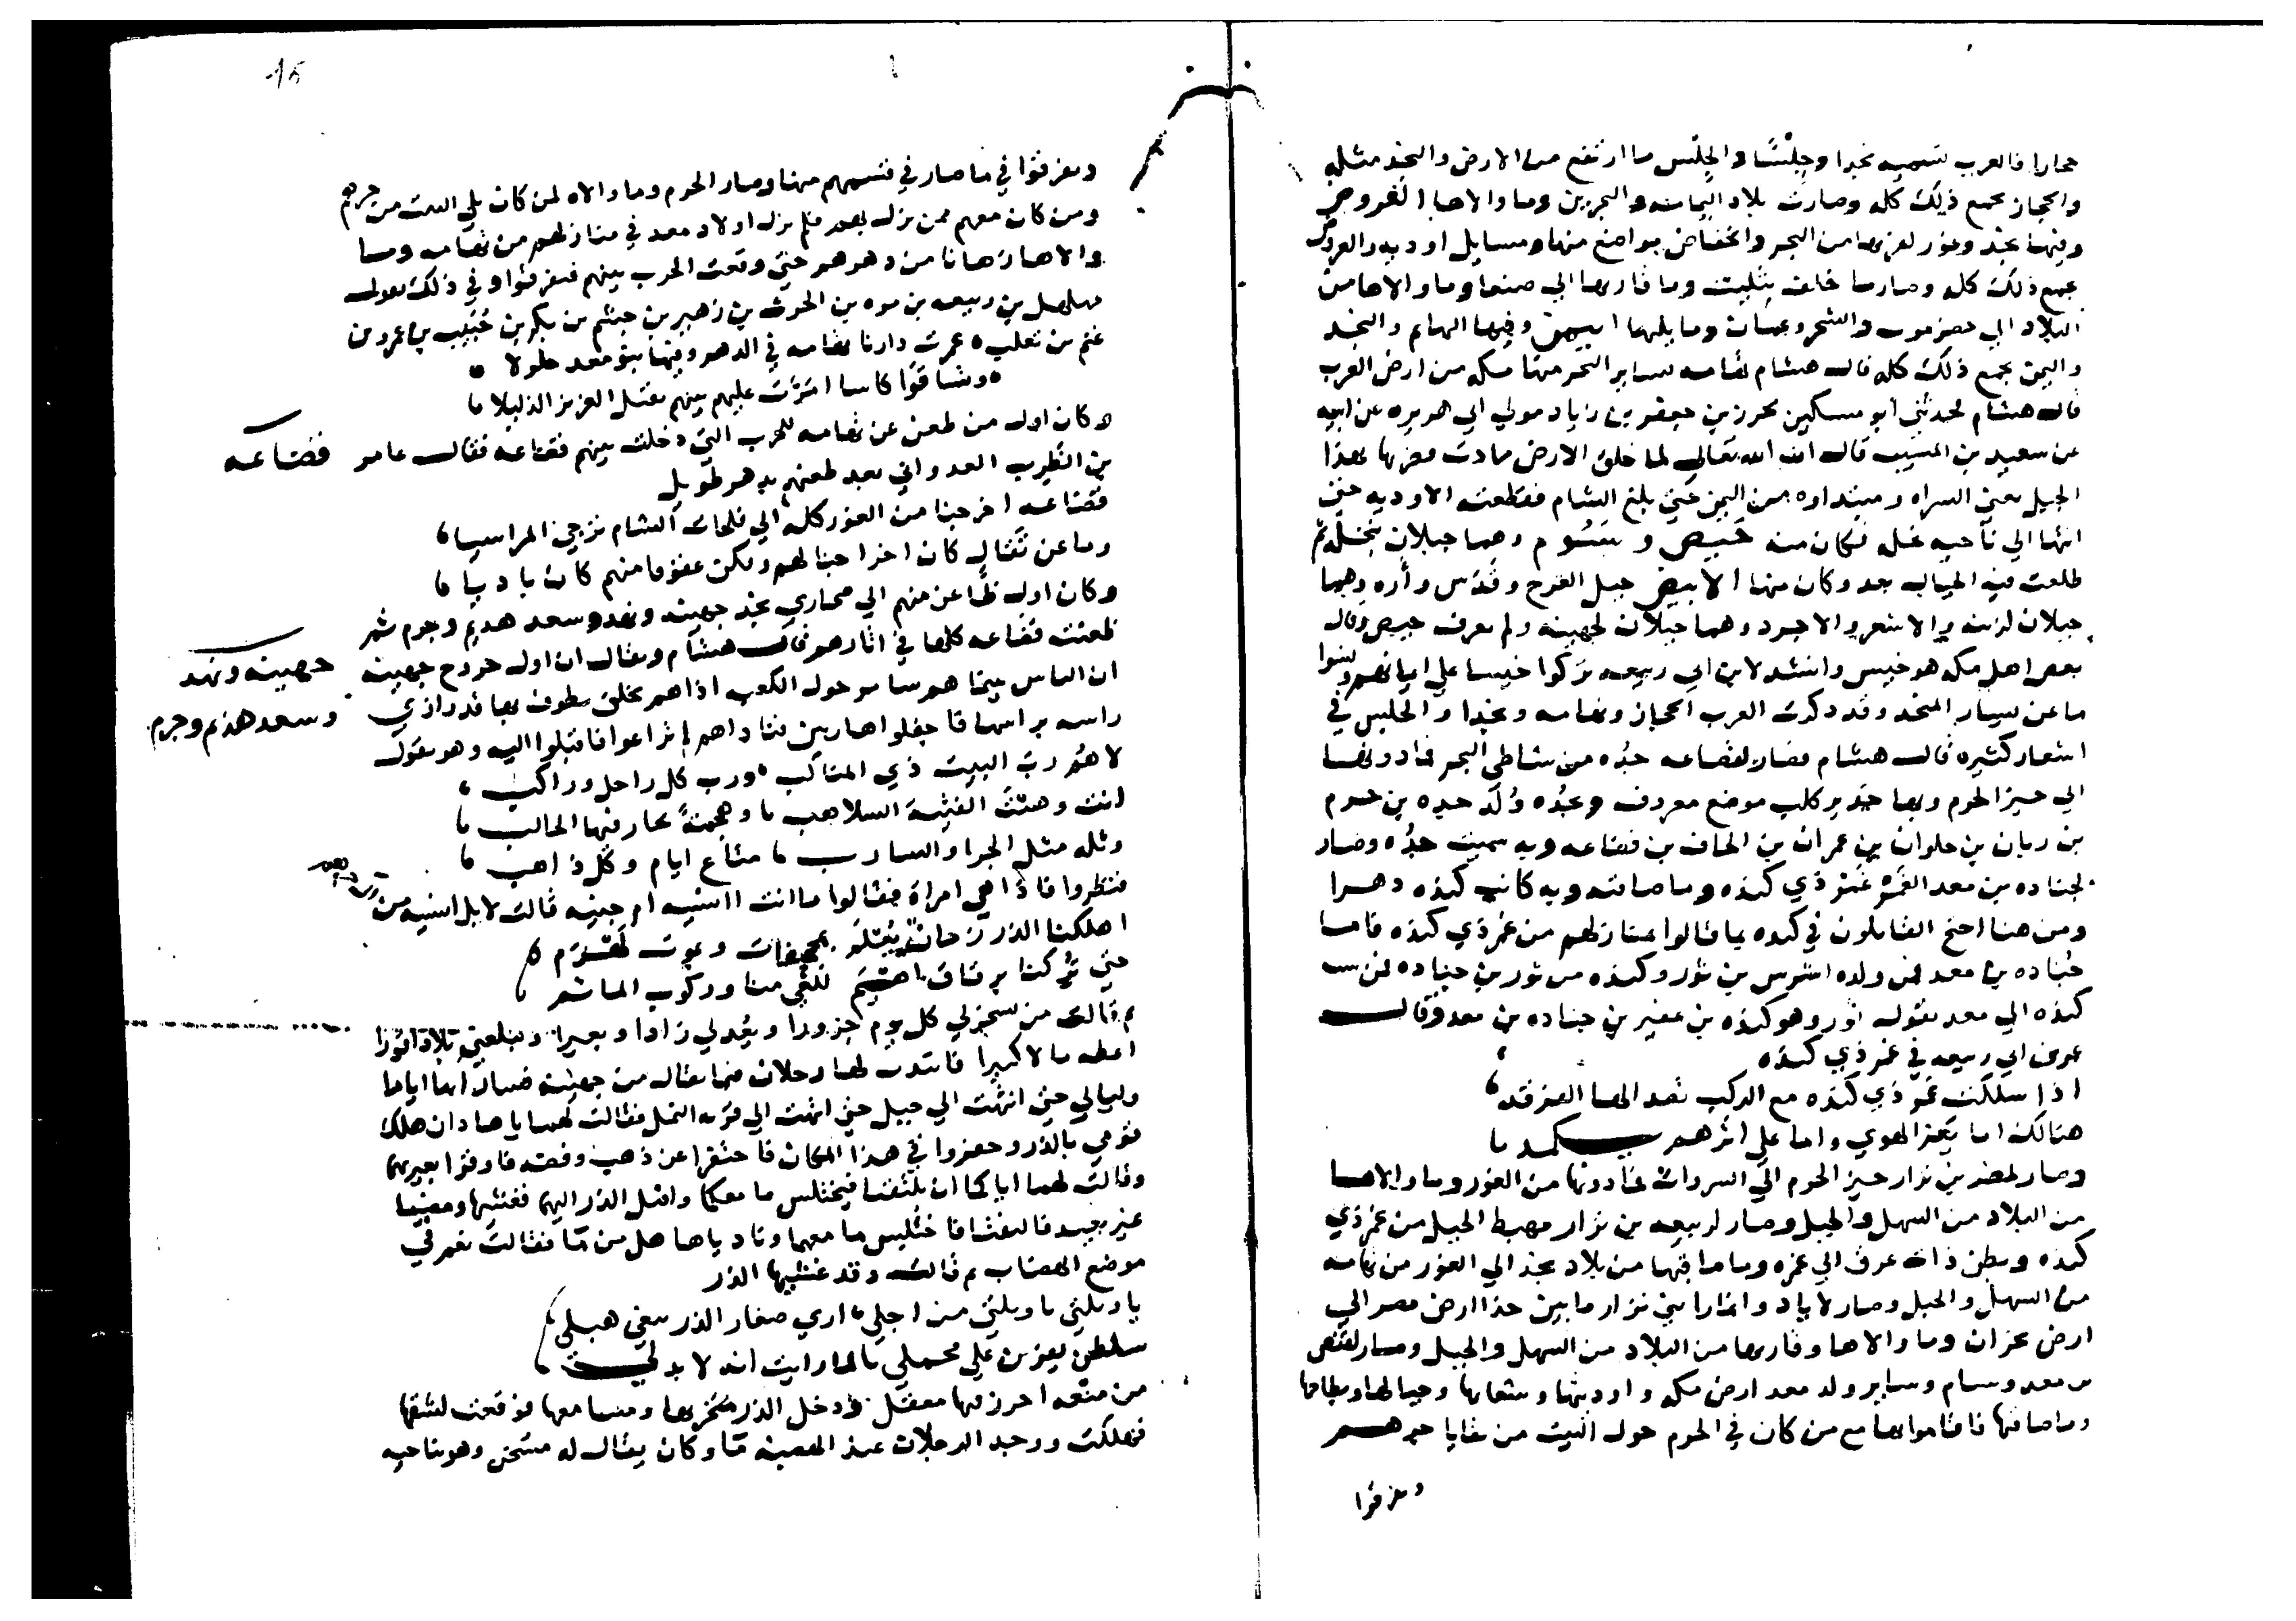 حجازا فالعرب تسميه نجدا وجلسا والجلس ما ارتفع من الارض والنجد مثله
والحجاز يجمع ذلك كله وصارت بلاد اليمامه والبحرين وما والاها العروض
وفيها نجد وغور لقربها من البحر وانخفاض مواضع منها ومسايل اوديه والعروض
يجمع ذلك كله وصار ما خلف تثليث وما قاربها الي صنعا وما والاها من
البلاد الي حضرموت والشحر وعمان وما يليها اليمن وفيها التهايم والنجد
واليمن يجمع ذلك كله قال هشام تهامه تساير البحر منها مكه من ارض العرب
قال هشام فحدثني ابو مسكين محرز بن جعفر بن زياد مولي ابي هريره عن ابيه
عن سعيد بن المسيب قال ان الله تعالي لما خلق الارض مادت فضربها بهذا
الجبل يعني السراه ومبتداوه من اليمن حتي بلغ الشام فقطعته الاوديه حتي
انتها الي ناحيه نخله فكان منه خيص و يسوم وهما جبلان بنخله ثم
طلعت منه الجبال بعد وكان منها الابيض جبل العرج وقدس واره وهما
جبلان لمزينه والاشعر والاجرد وهما جبلان لجهينه ولم يعرف خيص وقال
بعض اهل مكه هو خيس وانشد لابن ابي ربيعه تركوا خيسا علي ايمانهم ويسوما
ما عن يسار المنجد وقد ذكرت العرب الحجاز وتهامه ونجدا والجلس في
اشعار كثيره قال هشام فصار لقضاعه جده من شاطي البحر فما دونها
الي حيز الحرم وبها حجر كلب موضع معروف وبجده ولد جده بن جرم
بن ربان بن حلوان بن عمران بن الحاف بن قضاعه وبه سميت جده وصار
لجناده بن معد الغمر غمر ذي كنده وما صاقبه وبه كانت كنده دهرا
ومن هنا احتج القايلون في كنده بما قالوا لمنازلهم من غمر ذي كنده فاما
جناده بن معد فمن ولده اشرس بن ثور وكنده من ثور بن جناده فمن نسب
كنده الي معد يقول ثور وهو كنده بن عفير بن جناده بن معد وقال
عمر بن ابي ربيعه في غمر ذي كنده
اذا سلكت غمر ذي كنده مع الركب قصد لها الفرقد
هنالك اما يعز الهوي واما علي اثرهم يكمد
وصار لمضر بن نزار حيز الحرم الي السروات فما دونها من الغور وما والاها
من البلاد من السهل والجبل وصار لربيعه بن نزار مهبط الجبل من غمر ذي
كنده وبطن ذات عرق الي غمره وما صاقبها من بلاد نجد الي الغور من تهامه
من السهل والجبل وصار لاياد وانمار ابني نزار ما بين حد ارض مضر الي
ارض نجران وما والاها وقاربها من البلاد من السهل والجبل وصار لقنص
بن معد وسنام وساير ولد معد ارض مكه واوديتها وشعابها وجبالها وبطاحها
وما صاقبها فاقاموا بها مع من كان في الحرم حول البيت من بقايا جرهم
وتفرقوا
15
وتفرقوا في ما صار في قسمهم منها وصار الحرم وما والاه لمن كان يلي البيت من جرهم
ومن كان معهم ممن نزل بعد فلم يزل اولاد معد في منازلهم من تهامه وما
والاها زمانا من دهرهم حتي وقعت الحرب بينهم فتفرقوا وفي ذلك يقول
مهلهل بن ربيعه بن مره بن الحرث بن زهير بن جشم بن بكر بن حبيب بن عمرو بن
غنم بن تغلب عمرت دارنا تهامه في الدهر وفيها بنو معد حلولا
وتساقوا كاسا امرت عليهم بينهم يقتل العزيز الذليلا
وكان اول من ظعن عن تهامه للحرب التي دخلت بينهم قضاعه فقال عامر
قضاعه
بن الظرب العدواني بعد ظعنهم بدهر طويل
قضاعه اخرجنا من الغور كله الي فلجات الشام تزجي المراسيا
وما عن تقال كان اخراجنا لهم ولكن عقوقا منهم كان باديا
وكان اول ظاعن منهم الي صحاري نجد جهينه ونهد وسعد هذيم وجرم ثم
ظعنت قضاعه كلها في اثارهم قال هشام ويقال ان اول خروج جهينه
جهينه ونهد
وسعد هذيم وجرم
ان الناس بينا هم نيام حول الكعبه اذا هم بخلق يطوف بها قد راذي
راسه براسها فاجفلوا هاربين فناداهم لم تراعوا فاقبلوا اليه وهو يقول
لاهم رب البيت ذي المناكب ورب كل راحل وراكب
انت وهبت الفتيه السلاهب وهجمة يحار فيها الحالب
وثله مثل الجراد السارب متاع ايام وكل ذاهب
فنظروا فاذا هي امراه فقالوا ما انت انسيه ام جنيه قالت لا بل انسيه من
اهلكنا الذر زمان يعلم بمجحفات وبموت لهذم
حتي تركنا برقاق اهتيم للبغي منا وركوب الماثم
ثم قالت من ينحر لي كل يوم جزورا ويعد لي زادا وبعيرا ويبلغني بلادا قورا
اعطه مالا كبيرا فانتدب لها رجلان فيما يقال من جهينه فسارا بها اياما
وليالي حتي انتهت الي جبيل حتي انتهت الي قريه النمل فقالت لهما ياهاذان هلك
قومي بالذر وحفروا في هذا المكان فاحتفرا عن ذهب وفضه فاوقرا بعيريهما
وقالت لهما اياكما ان تلتفتا فيختلس ما معكما واقبل الذر اليهم فغشيها ومضيا
غير بعيد فالتفتا فاختلس ما معهما وناديا ها هل من ما فقالت نعم في
موضع الهضاب ثم قالت وقد غشيها الذر
يا ويلتي يا ويلتي من اجلي اري صغار الذر يبغي هبلي
سلطن يفرين علي محملي لما رايت انه لا بد لي
من منعه احرز فيها معقلي ودخل الذر منخريها ومسامعها فوقعت لشقها
فهلكت ووجد الرجلان عند الهضبه ما وكان يقال له مسخر وهو بناحيه